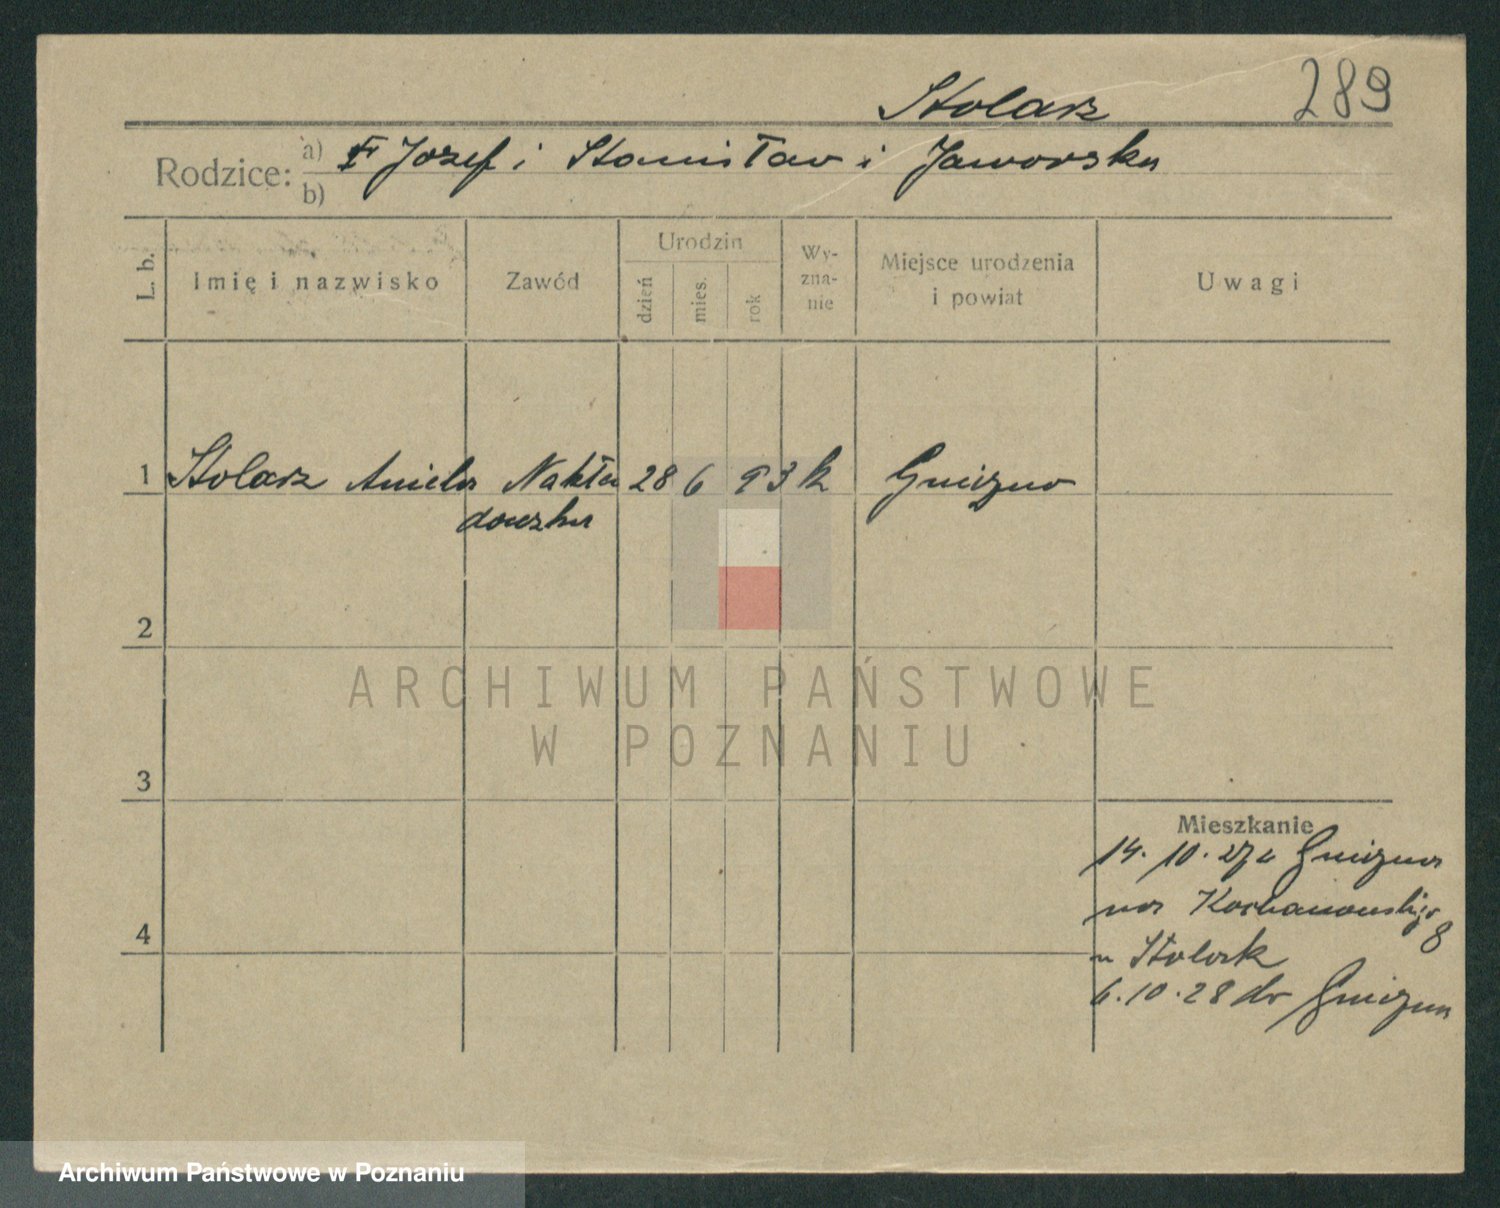 289
Stolarz
Rodzice: a) Jozef i Stanisław i Jaworska
b)
L. b. Imię i nazwisko Zawód Urodzin dzień mies. rok Wy-zna-nie Miejsce urodzenia i powiat Uwagi
1 Stolarz Aniela Nakła 28 6 93 k Gniezno
2
3
Mieszkanie
14. 10. 27 z Gniezna
Kochanowskiego 8
4
u Stolark
6.10.28 do Gniezna
ARCHIWUM PAŃSTWOWE
W POZNANIU
Archiwum Państwowe w Poznaniu